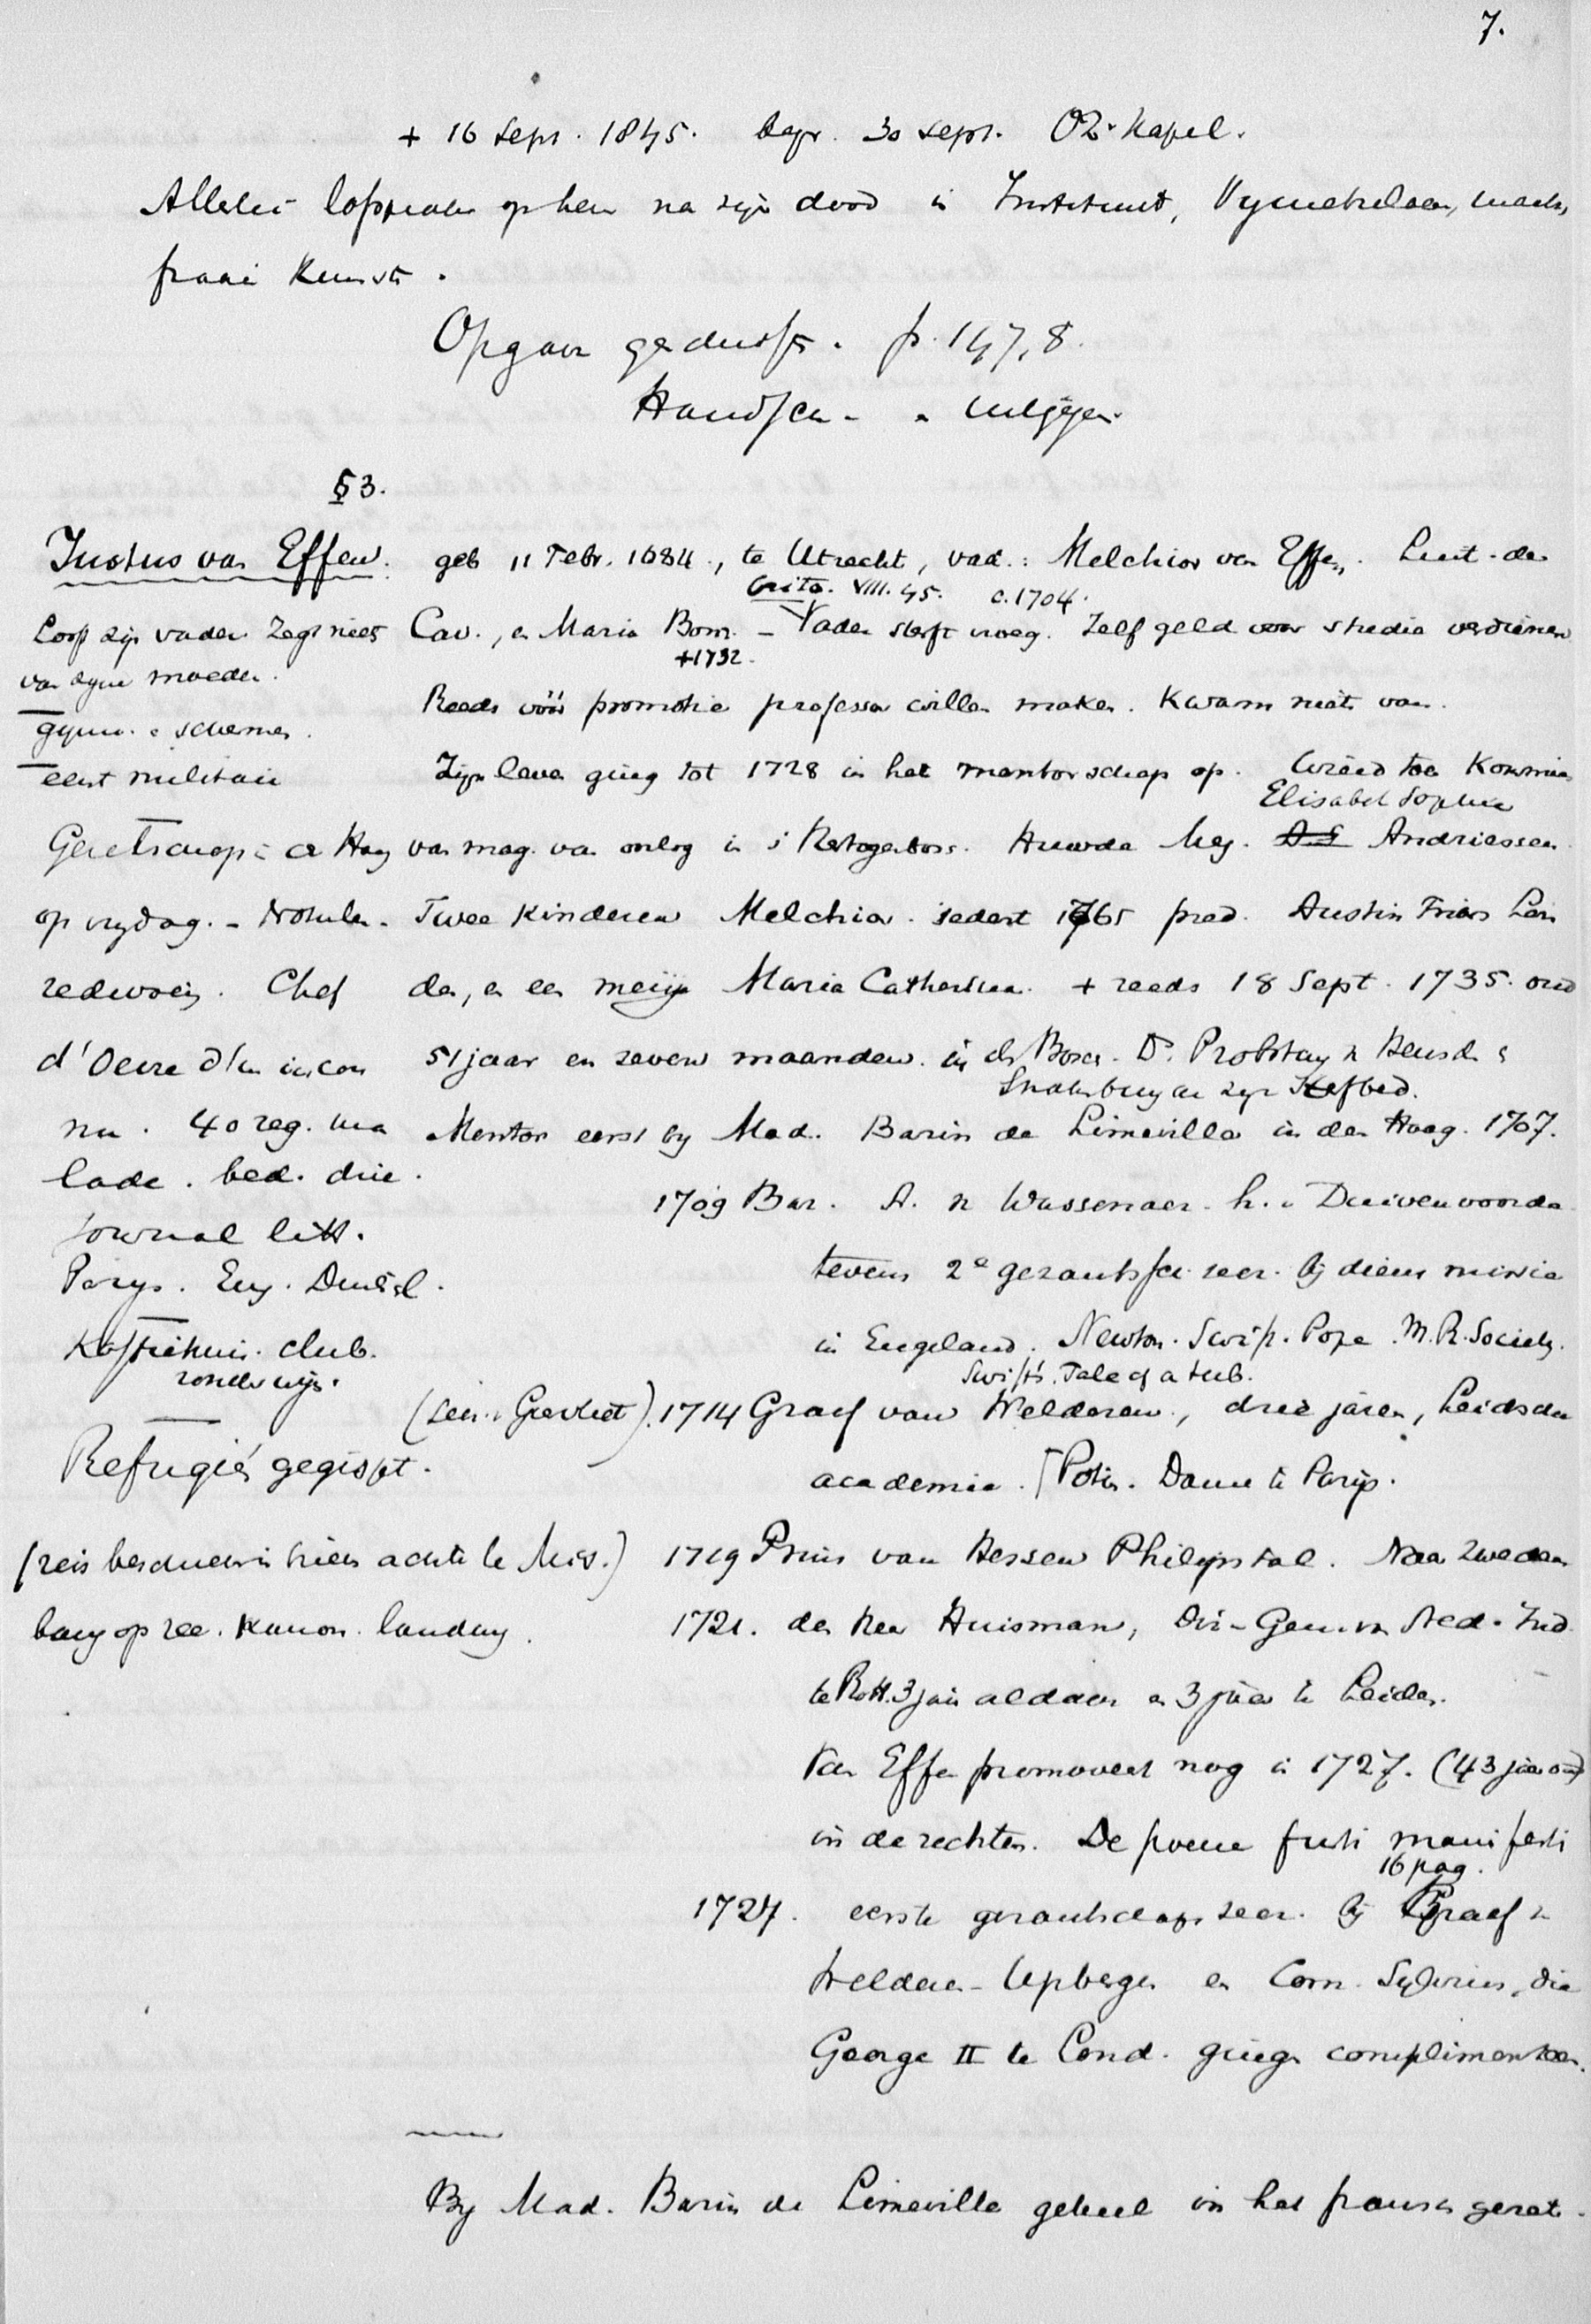 7.
+ 16 Sept. 1845. begr. 30 sept. OZ. Kapel.
Allerlei lofspraken op hem na zijn dood in Instituut, Maats,
fraaie Kunst.
Opgave gedrukt. p. 147, 8.
Handsch.
§3.
Justus van Effen. geb 11 Febr. 1684., te Utrecht, vad.: Melchior van Effen. Luit. der
Crito. VIII. 45. c. 1704.
Loof zijn vader. Zegt niets
Cav., en Maria Bom. - Vader sterft vroeg. Zelf geld voor studie verdienen
+1732.
van zyne moeder.
Reeds vóór promotie professor willen maken. Kwam niets van.
gymn. schermen.
eerst militair
Zijn leven ging tot 1728 in het mentorschap op. Werd toen Kommies
Elisabet Sophia
Gezelschap in de Haag
van mag. van oorlog in 's Hertogenbosch. Huwde Mej. Andriessen.
op vrydag. - Notulen.
Twee kinderen Melchior. sedert 1765 pred. Austin Friars Lon
redwozig. Chef
den, en een meisje Maria Catharina. + reeds 18 Sept. 1735. oud
d'Oevre d'un incon
51 jaar en zeven maanden. in den Bosch. Ds. Probsting
zyn sterfbed.
nu. 40 reg. ma
Mentor eerst by Mad. Barin de Limeville in den Haag. 1707.
lade. bed. drie.
1709 Bar. A. v Wassenaer. h. v Duivenvoorde
Journal litt.
tevens 2e gezantsch. secr. bij diens missie
Parijs. Eng. Duitsl.
in Engeland. Newton. Swift. Pope. M. R. Society.
Koffiehuis. club.
Swift's. Tale of a tub.
zonderwijs.
1714 Graaf van Welderen., drie jaren, Leidsche
Refugiés gegispt.
academie. Dame te Parijs.
(reis beschreven hier achter le Mis.)
1719 Prins van Hessen Philipstal. Naar Zweden
bang op zee. Kanon. landing.
1721. den Heer Huisman, Dir-Gen. van Ned. Ind
te Rott. 3 jaar aldaar en 3 jaar te Leiden.
Van Effen promoveert nog in 1727. (43 jaar oud)
in de rechten. De poena furti manifesti
16 pag.
1727. eerste gezantschaps secr. bij Graaf v
Welderen- en Corn. Sylvius, die
George II te Lond. gingen complimenteeren.
By Mad. Barin de Limeville geheel in het fransch gezet.